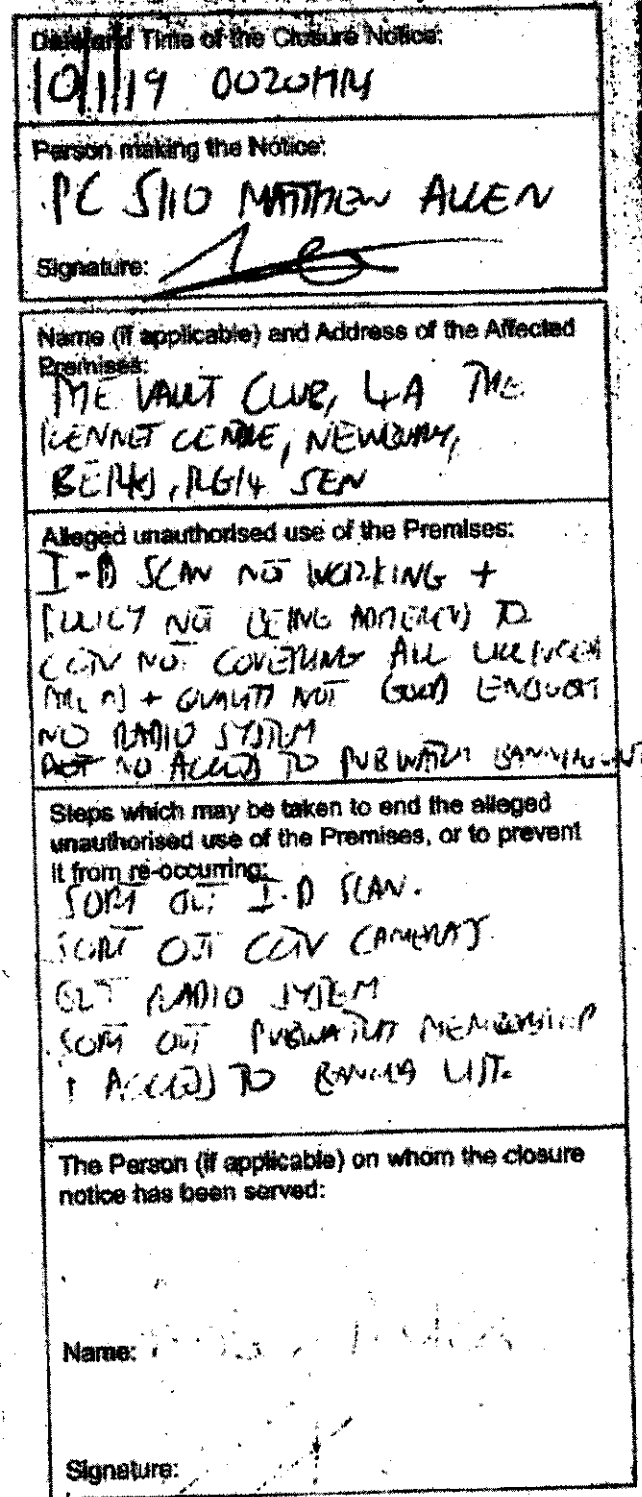 Date and Time of the Closure Notice:
10/1/19 0020HRS
Person making the Notice:
PC 5110 MATTHEW ALLEN
Signature:
Name (if applicable) and Address of the Affected
Premises:
THE VAULT CLUB, 4A THE
KENNET CENTRE, NEWBURY,
BERKS, RG14 5EN
Alleged unauthorised use of the Premises:
I-D SCAN NOT WORKING +
POLICY NOT BEING ADHERED TO
CCTV NOT COVERING ALL LICENCED
AREAS + QUALITY NOT GOOD ENOUGH
NO RADIO SYSTEM
NO ACCESS TO PUBWATCH BANNING LIST
Steps which may be taken to end the alleged
unauthorised use of the Premises, or to prevent
it from re-occurring:
SORT OUT I-D SCAN.
SORT OUT CCTV CAMERAS.
GET RADIO SYSTEM
SORT OUT PUBWATCH MEMBERSHIP
+ ACCESS TO BANNING LIST.
The Person (if applicable) on whom the closure
notice has been served:
Name:
Signature: